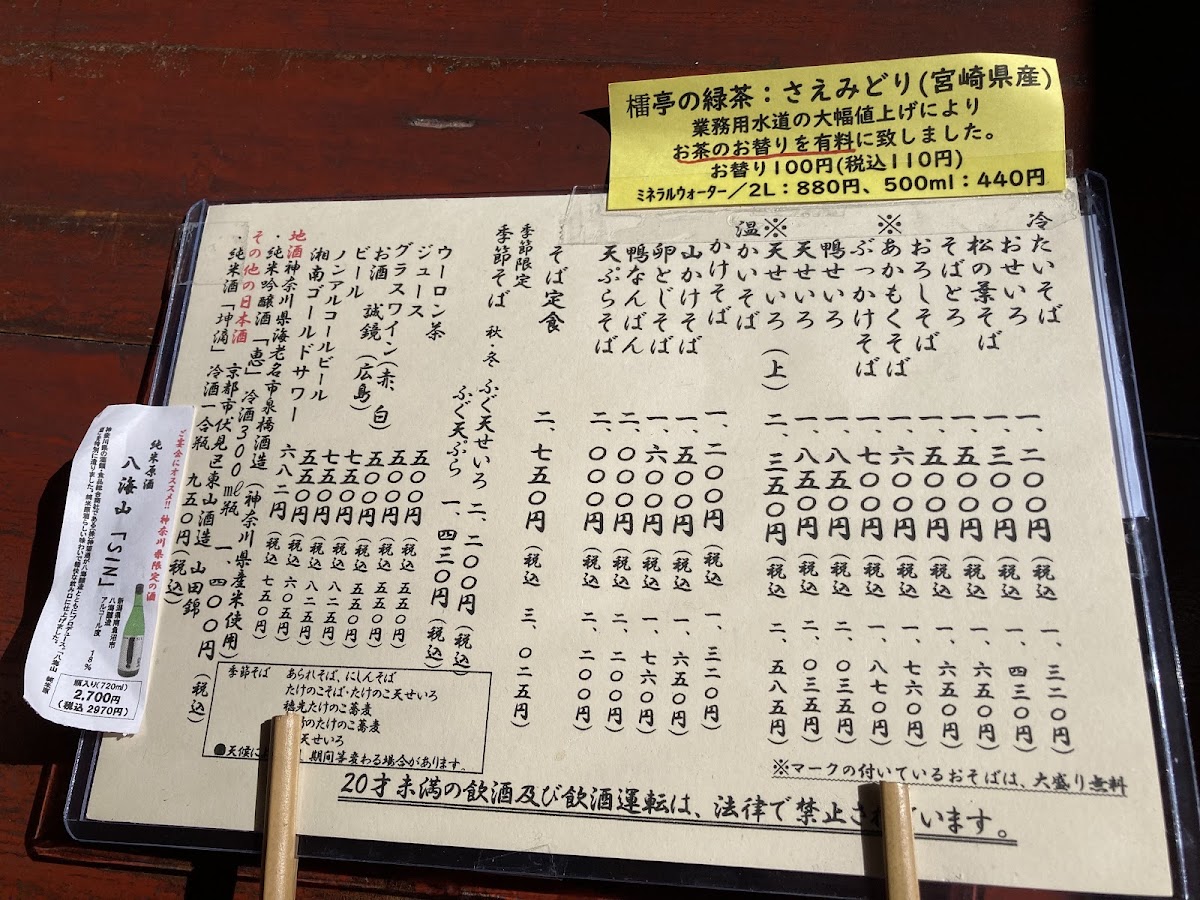 橿亭の緑茶：さえみどり(宮崎県産)
業務用水道の大幅値上げにより
お茶のお替りを有料に致しました。
お替り100円(税込110円)
ミネラルウォーター／2L：880円、500ml：440円
冷たいそば
おせいろ 一、二〇〇円（税込 一、三二〇円）
松の葉そば 一、三〇〇円（税込 一、四三〇円）
そばとろ 一、五〇〇円（税込 一、六五〇円）
おろしそば 一、五〇〇円（税込 一、六五〇円）
※あかもくそば 一、六〇〇円（税込 一、七六〇円）
ぶっかけそば 一、七〇〇円（税込 一、八七〇円）
鴨せいろ 一、八五〇円（税込 二、〇三五円）
天せいろ 一、八五〇円（税込 二、〇三五円）
※天せいろ（上） 二、三五〇円（税込 二、五八五円）
温かいそば
かけそば 一、二〇〇円（税込 一、三二〇円）
山かけそば 一、五〇〇円（税込 一、六五〇円）
卵とじそば 一、六〇〇円（税込 一、七六〇円）
鴨なんばん 二、〇〇〇円（税込 二、二〇〇円）
天ぷらそば 二、〇〇〇円（税込 二、二〇〇円）
そば定食 二、七五〇円（税込 三、〇二五円）
季節限定
季節そば 秋・冬 ふぐ天せいろ 二、二〇〇円（税込）
ふぐ天ぷら 一、四三〇円（税込）
ウーロン茶 五〇〇円（税込 五五〇円）
ジュース 五〇〇円（税込 五五〇円）
グラスワイン（赤、白） 五〇〇円（税込 五五〇円）
お酒 誠鏡（広島） 七五〇円（税込 八二五円）
ビール 七五〇円（税込 八二五円）
ノンアルコールビール 五五〇円（税込 六〇五円）
湘南ゴールドサワー 六八二円（税込 七五〇円）
地酒 神奈川県海老名市泉橋酒造（神奈川県産米使用）
・純米吟醸酒「恵」 冷酒300㎖瓶 一、四〇〇円（税込）
その他の日本酒 京都市伏見区東山酒造 山田錦
・純米酒「坤滴」 冷酒一合瓶 九五〇円（税込）
ご宴会にオススメ!! 神奈川県限定の酒
純米原酒
八海山「SIN」
新潟県南魚沼市
八海醸造
アルコール度 18%
瓶入り(720ml)
2,700円
(税込 2970円)
季節そば あられそば、にしんそば
たけのこそば・たけのこ天せいろ
穂先たけのこ蕎麦
のたけのこ蕎麦
天せいろ
●天候に 期間等変わる場合があります。
※マークの付いているおそばは、大盛り無料
20才未満の飲酒及び飲酒運転は、法律で禁止されています。